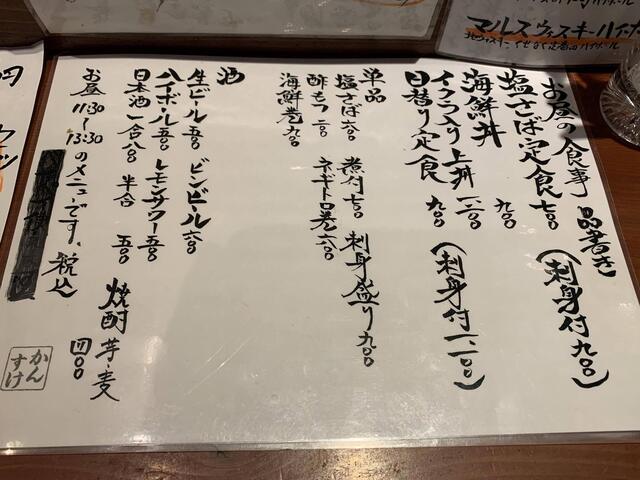 お昼の食事 品書き
塩さば定食 七〇〇 (刺身付 九〇〇)
海鮮丼 九〇〇
イクラ入り上丼 一.二〇〇
日替り定食 九〇〇 (刺身付 一.一〇〇)
単品
塩さば 六〇〇 煮付 七〇〇 刺身盛り 九〇〇
酢もつ 二〇〇 ネギトロ巻 六〇〇
海鮮巻 九〇〇
酒
生ビール 五〇〇 ビンビール 六〇〇
ハイボール 五〇〇 レモンサワー 五〇〇
日本酒 一合 八〇〇 半合 五〇〇 焼酎 芋・麦 四〇〇
お昼 11:30〜13:30のメニューです。税込
かんすけ
マルスウィスキーハイボール